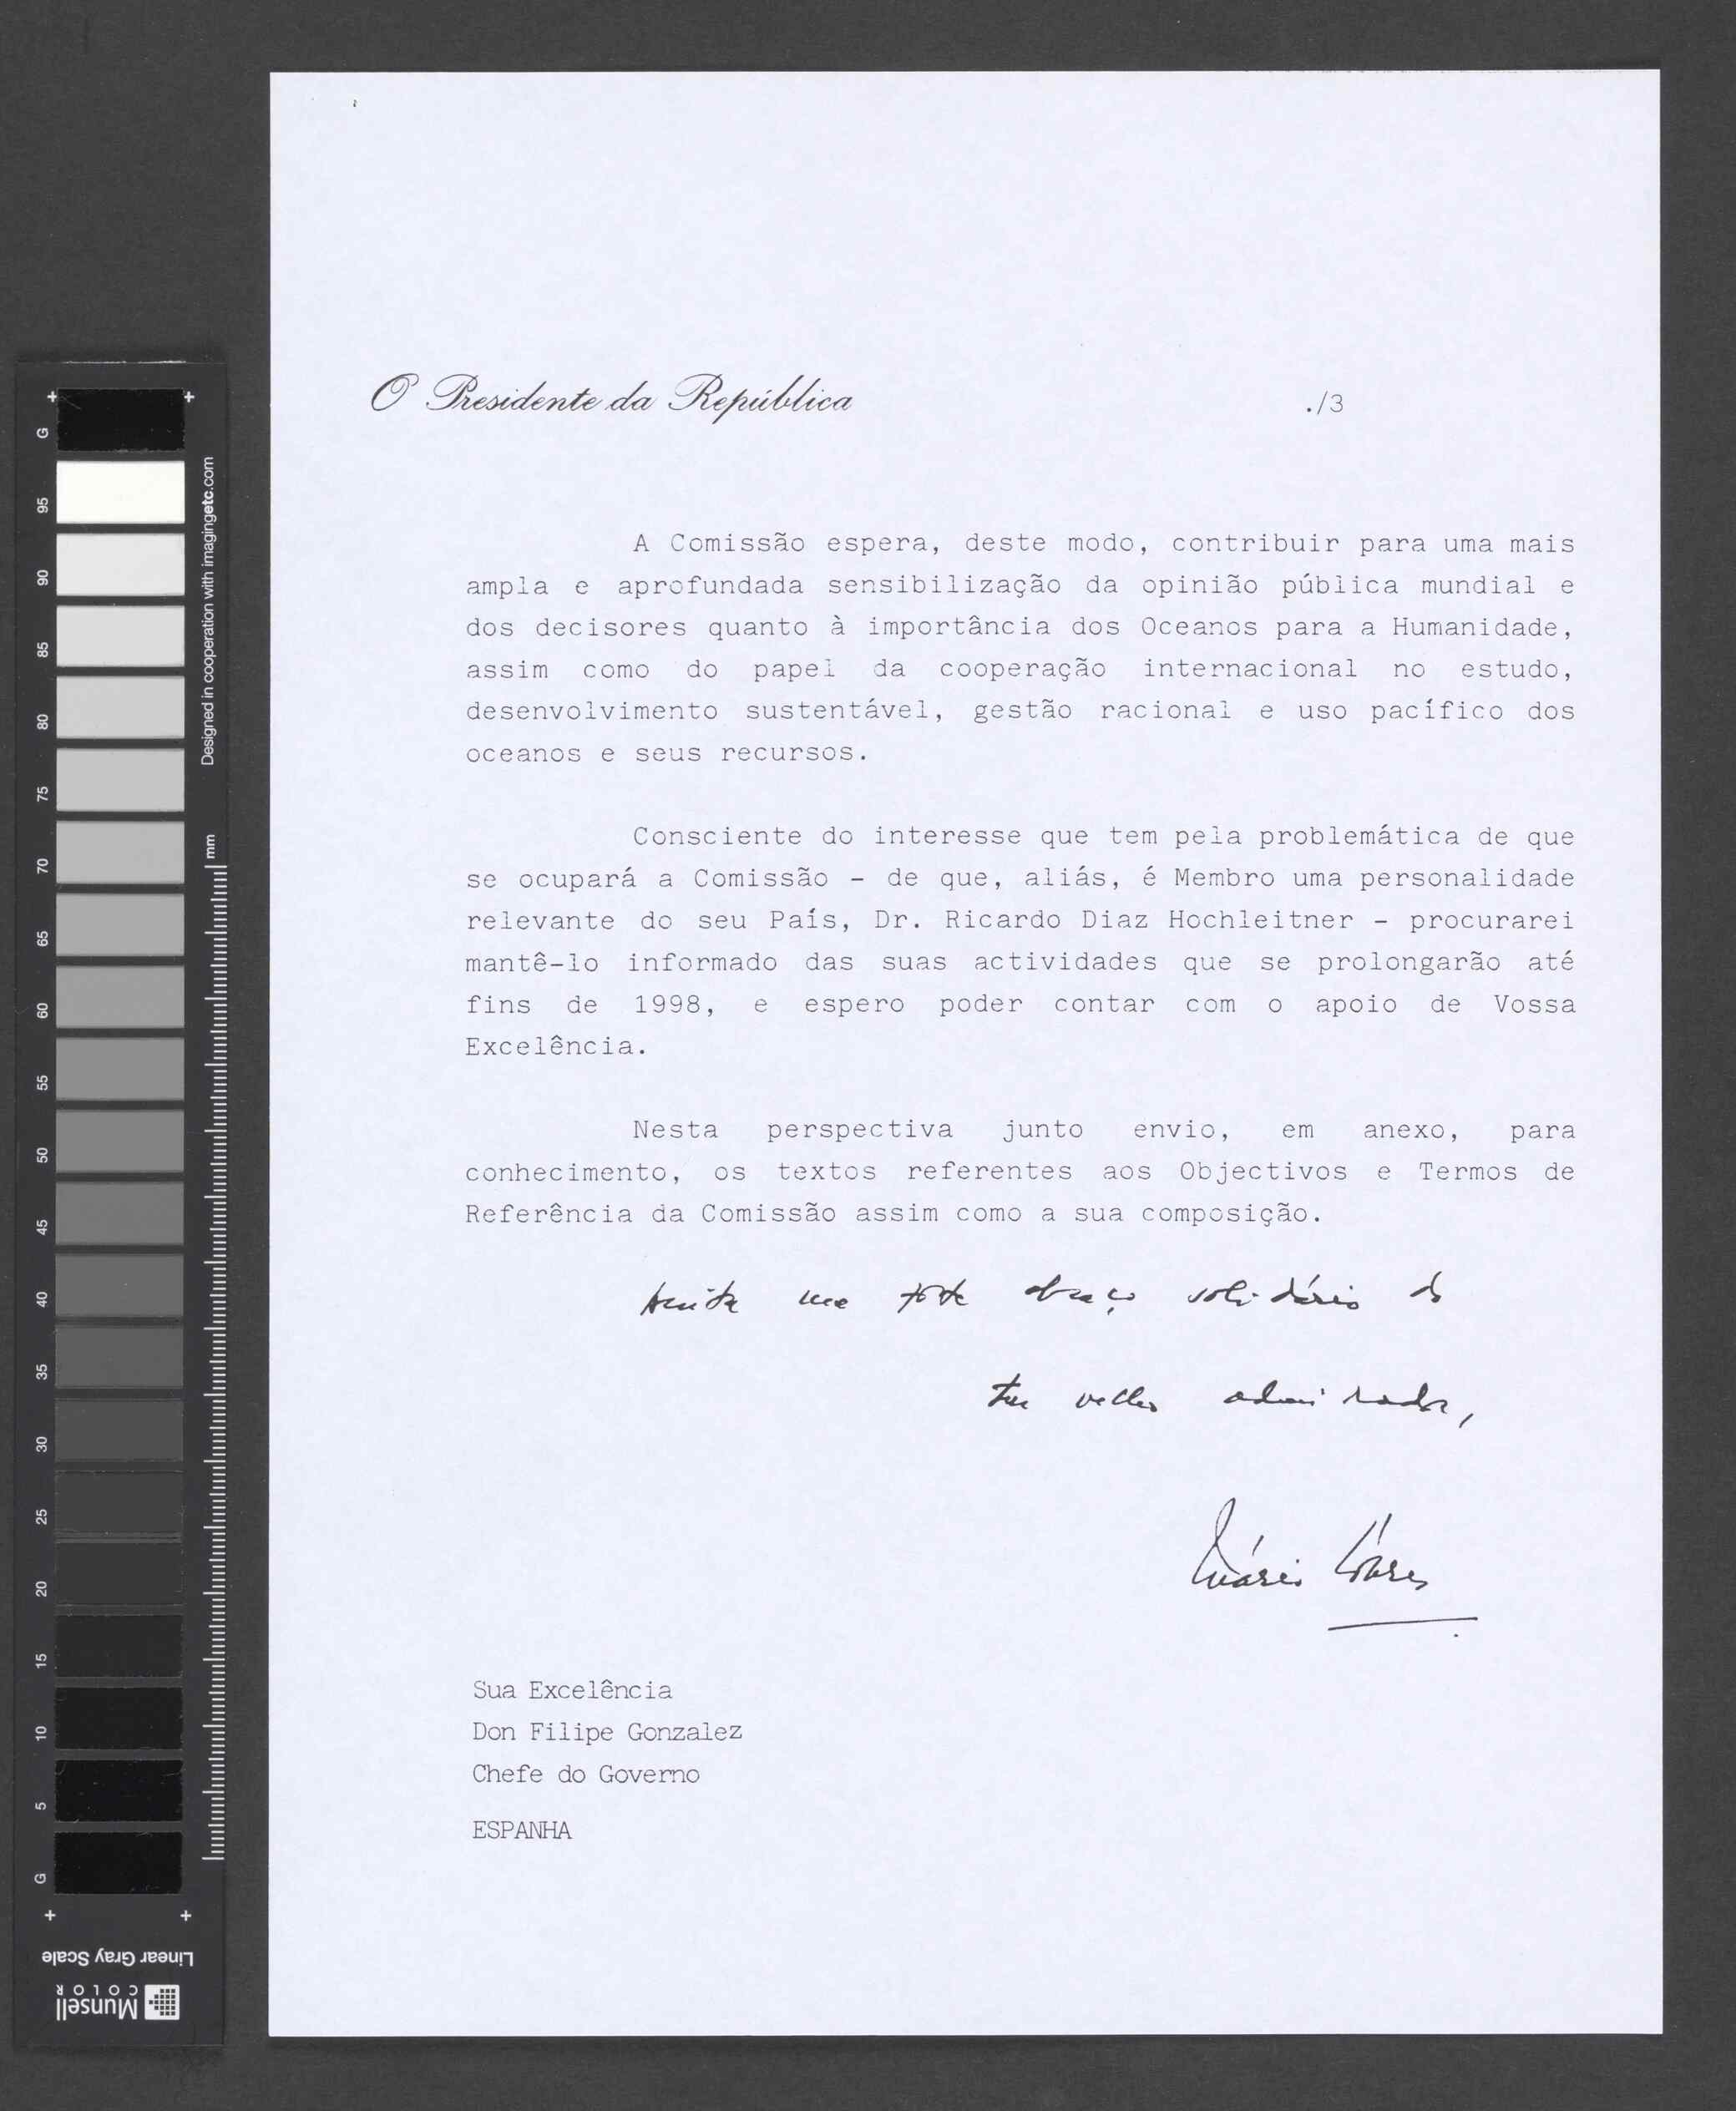 O Presidente da República
./3
A Comissão espera, deste modo, contribuir para uma mais
ampla e aprofundada sensibilização da opinião pública mundial e
dos decisores quanto à importância dos Oceanos para a Humanidade,
assim como do papel da cooperação internacional no estudo,
desenvolvimento sustentável, gestão racional e uso pacífico dos
oceanos e seus recursos.
Consciente do interesse que tem pela problemática de que
se ocupará a Comissão - de que, aliás, é Membro uma personalidade
relevante do seu País, Dr. Ricardo Diaz Hochleitner - procurarei
mantê-lo informado das suas actividades que se prolongarão até
fins de 1998, e espero poder contar com o apoio de Vossa
Excelência.
Nesta perspectiva junto envio, em anexo, para
conhecimento, os textos referentes aos Objectivos e Termos de
Referência da Comissão assim como a sua composição.
Aceita um forte abraço solidário do
teu velho admirador,
Mário Soares
Sua Excelência
Don Filipe Gonzalez
Chefe do Governo
ESPANHA
G
95
90
85
80
75
70
65
60
55
50
45
40
35
30
25
20
15
10
5
G
Designed in cooperation with imagingetc.com
mm
Linear Gray Scale
Munsell
COLOR